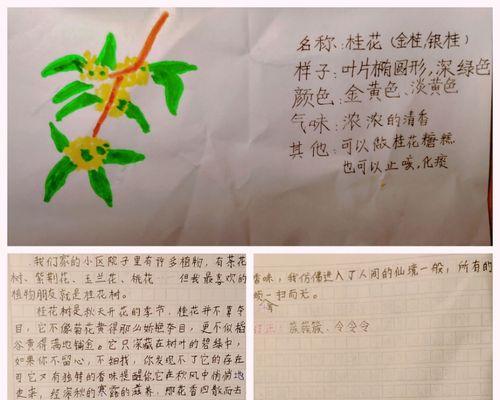 名称：桂花（金桂，银桂）
样子：叶片椭圆形，深绿色
颜色：金黄色、淡黄色
气味：浓浓的清香
其他：可以做桂花糖糕
也可以止咳，化痰
我们家的小区院子里有许多植物，有茶花
树、紫荆花、玉兰花、桃花……但我最喜欢的
植物朋友就是桂花树。
桂花树是秋天开花的季节，桂花并不算夺
目，它不像菊花黄得那么娇艳夺目，更不似稻
谷黄得满地铺金。它只深藏在树叶的碧绿中，
如果你不留心，不细找，你发现不了它的存在
可它又有独特的香味提醒你，它在秋风中悄悄地
走来，经深秋的寒露的滋养，那花香四散而去
香味，我仿佛进入了人间的仙境一般，所有的
烦一扫而无。
订正：蔟蔟蔟、令令令